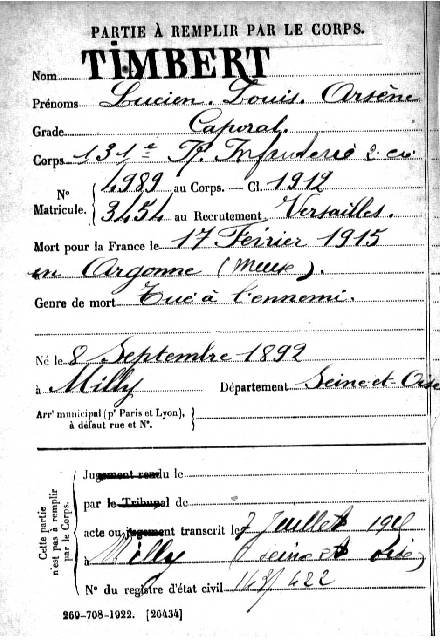 PARTIE À REMPLIR PAR LE CORPS.
Nom TIMBERT
Prénoms Lucien. Louis. Arsène
Grade Caporal.
Corps 131e R. Infanterie 2e
N° Matricule. 4989 au Corps. — Cl. 1912
3454 au Recrutement Versailles.
Mort pour la France le 17 Février 1915
en Argonne (Meuse).
Genre de mort Tué à l'ennemi.
Né le 8 Septembre 1892
à Milly Département Seine-et-Oise
Arrt municipal (pr Paris et Lyon),
à défaut rue et N°.
Cette partie
n'est pas à remplir
par le Corps.
Jugement rendu le
par le Tribunal de
acte ou jugement transcrit le 7 Juillet
à Milly (Seine et Oise)
N° du registre d'état civil
269-708-1922. [26434]